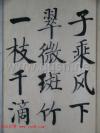 子乘风下
翠微斑竹
一枝千滴